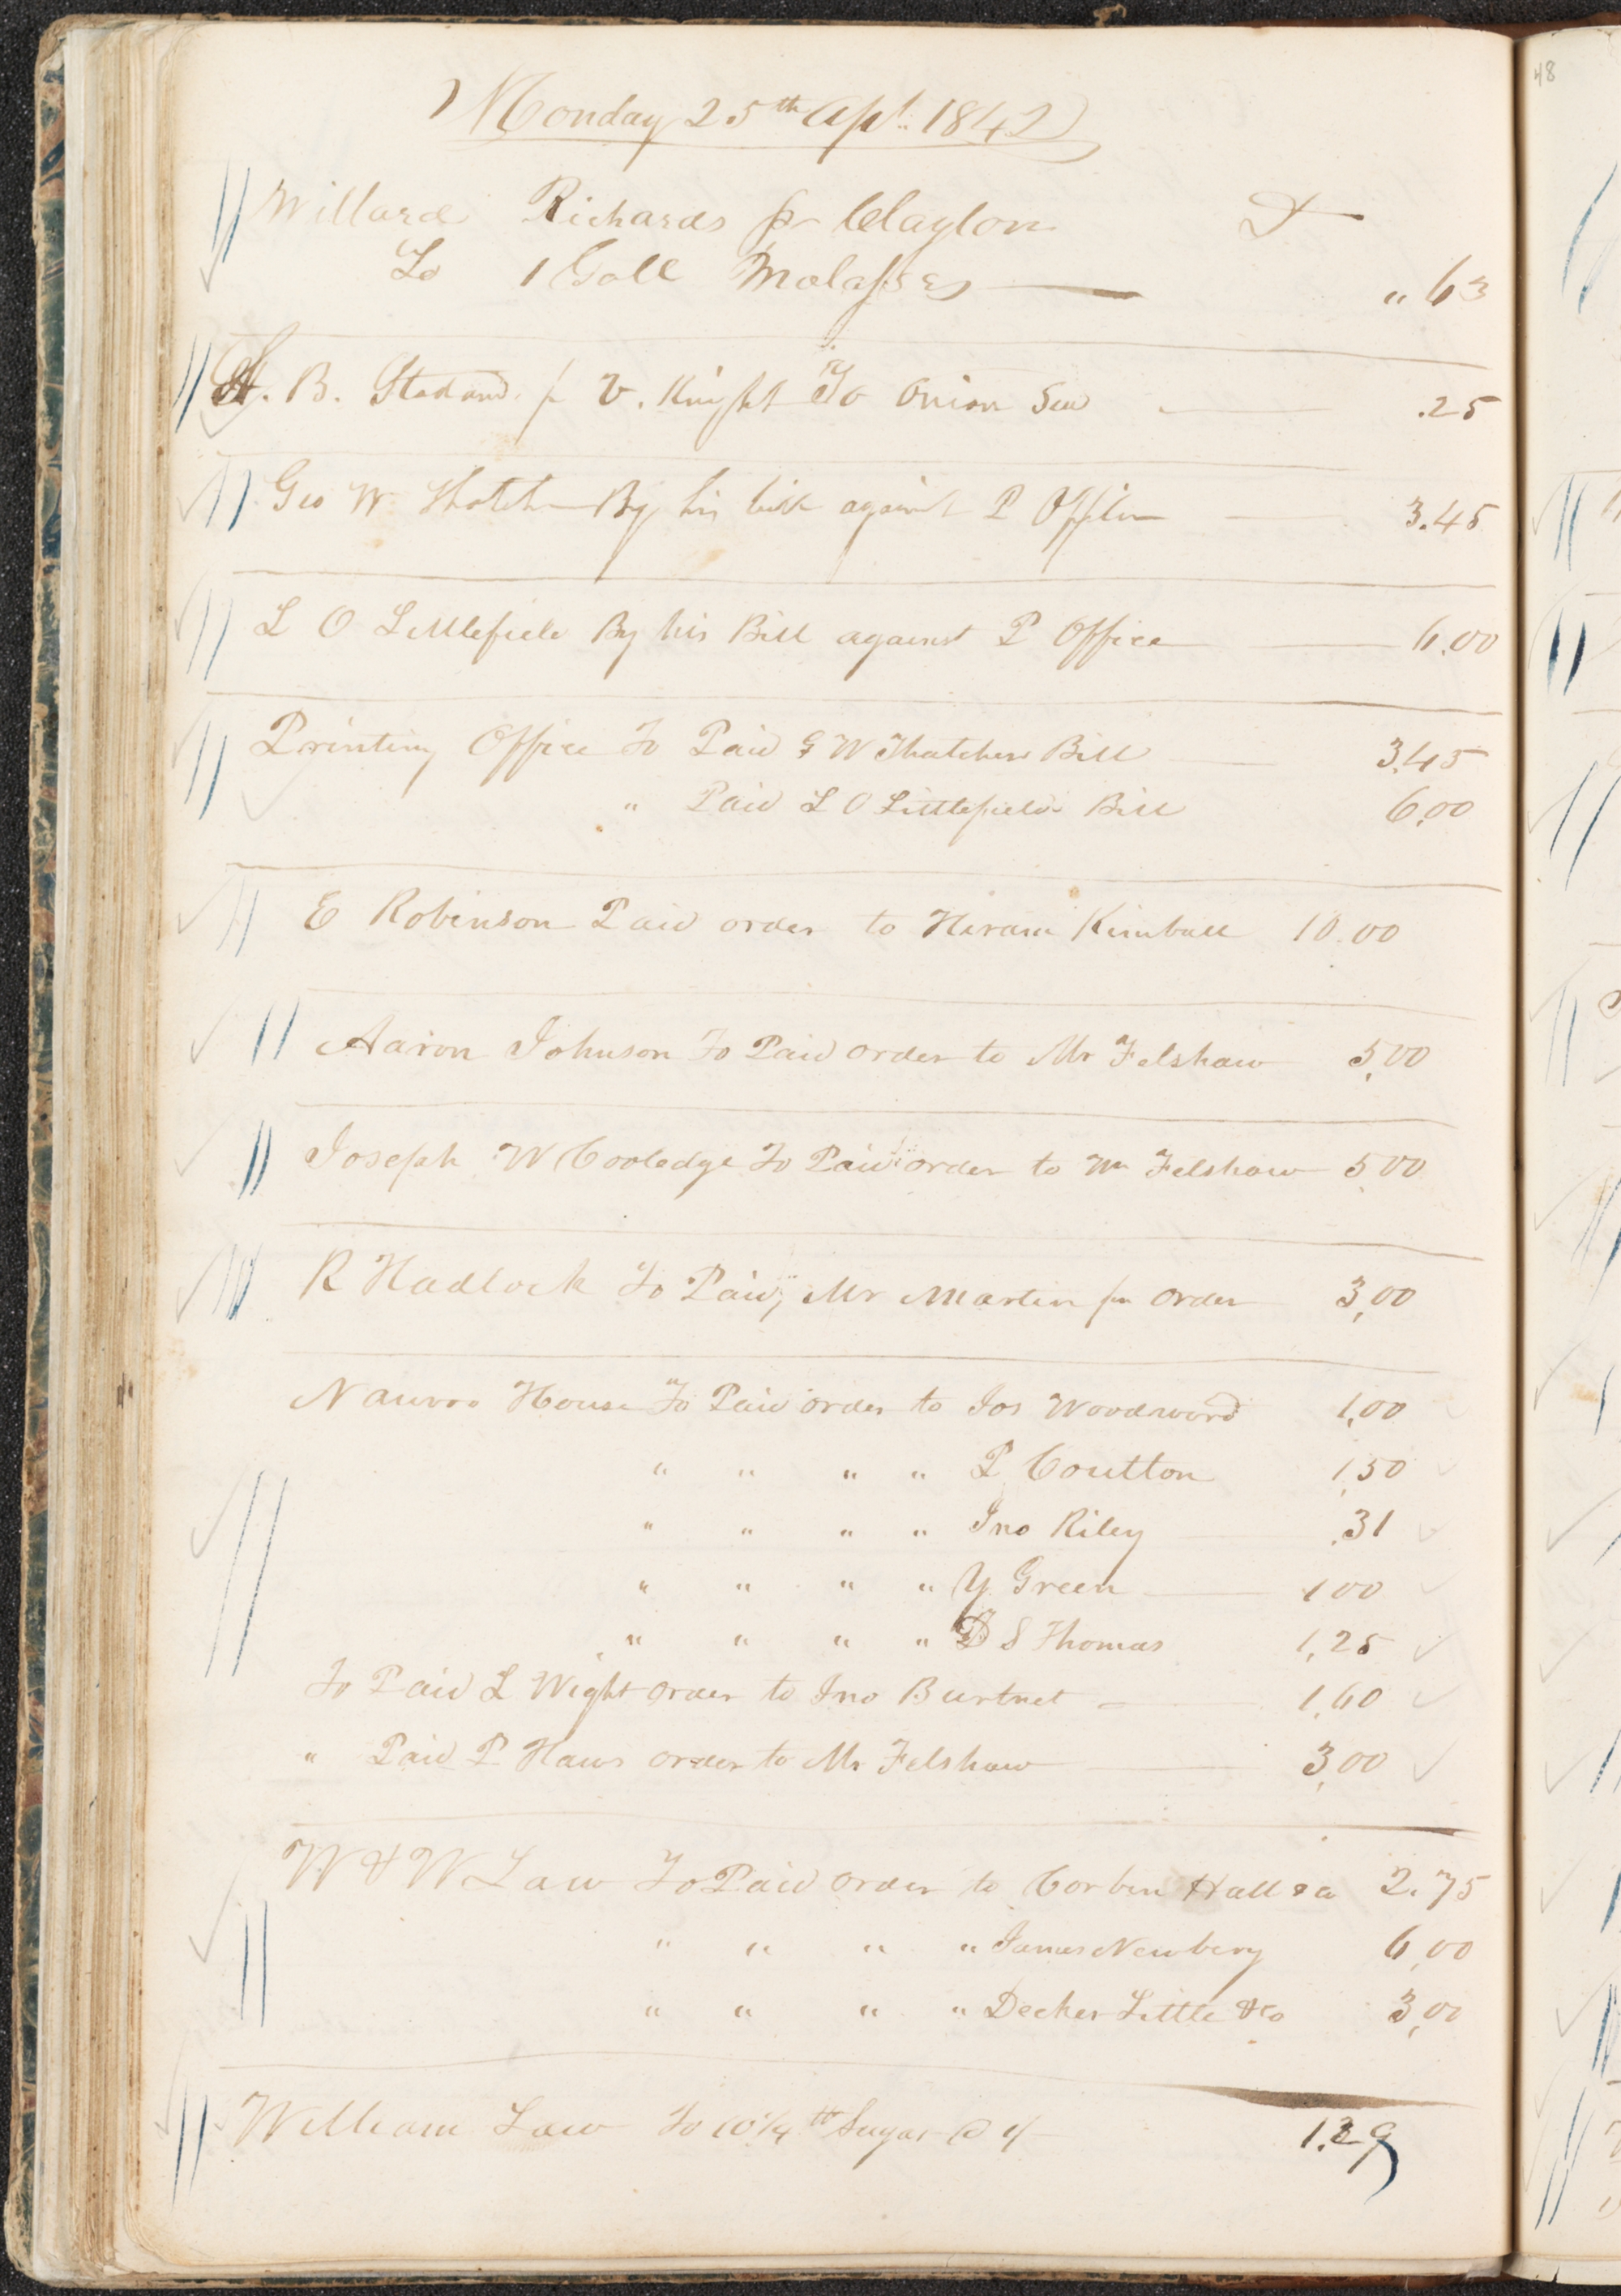 Monday 25th Apl. 1842
Willard Richards pr Clayton Dr
To 1 Gall Molasses " 63
H. B. Stodard. pr V. Knight To Onion Seed .25
Geo W Thatcher By his bill against P Office 3.45
L O Littlefield By his Bill against P Office 6.00
Printing Office To Paid G W Thatchers Bill 3.45
" Paid L O Littlefields Bill 6.00
E Robinson Paid order to Hiram Kimball 10.00
Aaron Johnson To Paid order to Mr Felshaw 5,00
Joseph W Cooledge To Paid order to Wm Felshaw 5,00
R Hadlock To Paid, Mr Martin per order 3,00
Nauvoo House To Paid order to Jos Woodward 1,00
" " " " P Coutton 1,50
" " " " Jno Riley .31
" " " " Y. Green 1 00
" " " " D S Thomas 1,25
To Paid L Wight order to Jno Burtnet 1,60
" Paid P Haws order to Mr Felshaw 3,00
W & W Law To Paid order to Corben Hall & Co 2.75
" " " " James Newbery 6,00
" " " " Decker Little & Co 3,00
William Law To 10 1/4 lb Sugar @ 1.29
48